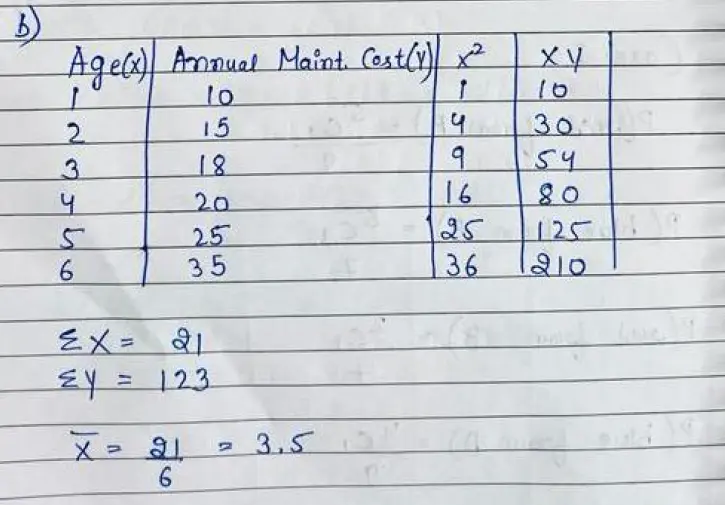 b)
Age(x) Annual Maint. Cost(y) x² XY
1 10 1 10
2 15 4 30
3 18 9 54
4 20 16 80
5 25 25 125
6 35 36 210
ΣX = 21
ΣY = 123
x̄ = 21/6 = 3.5